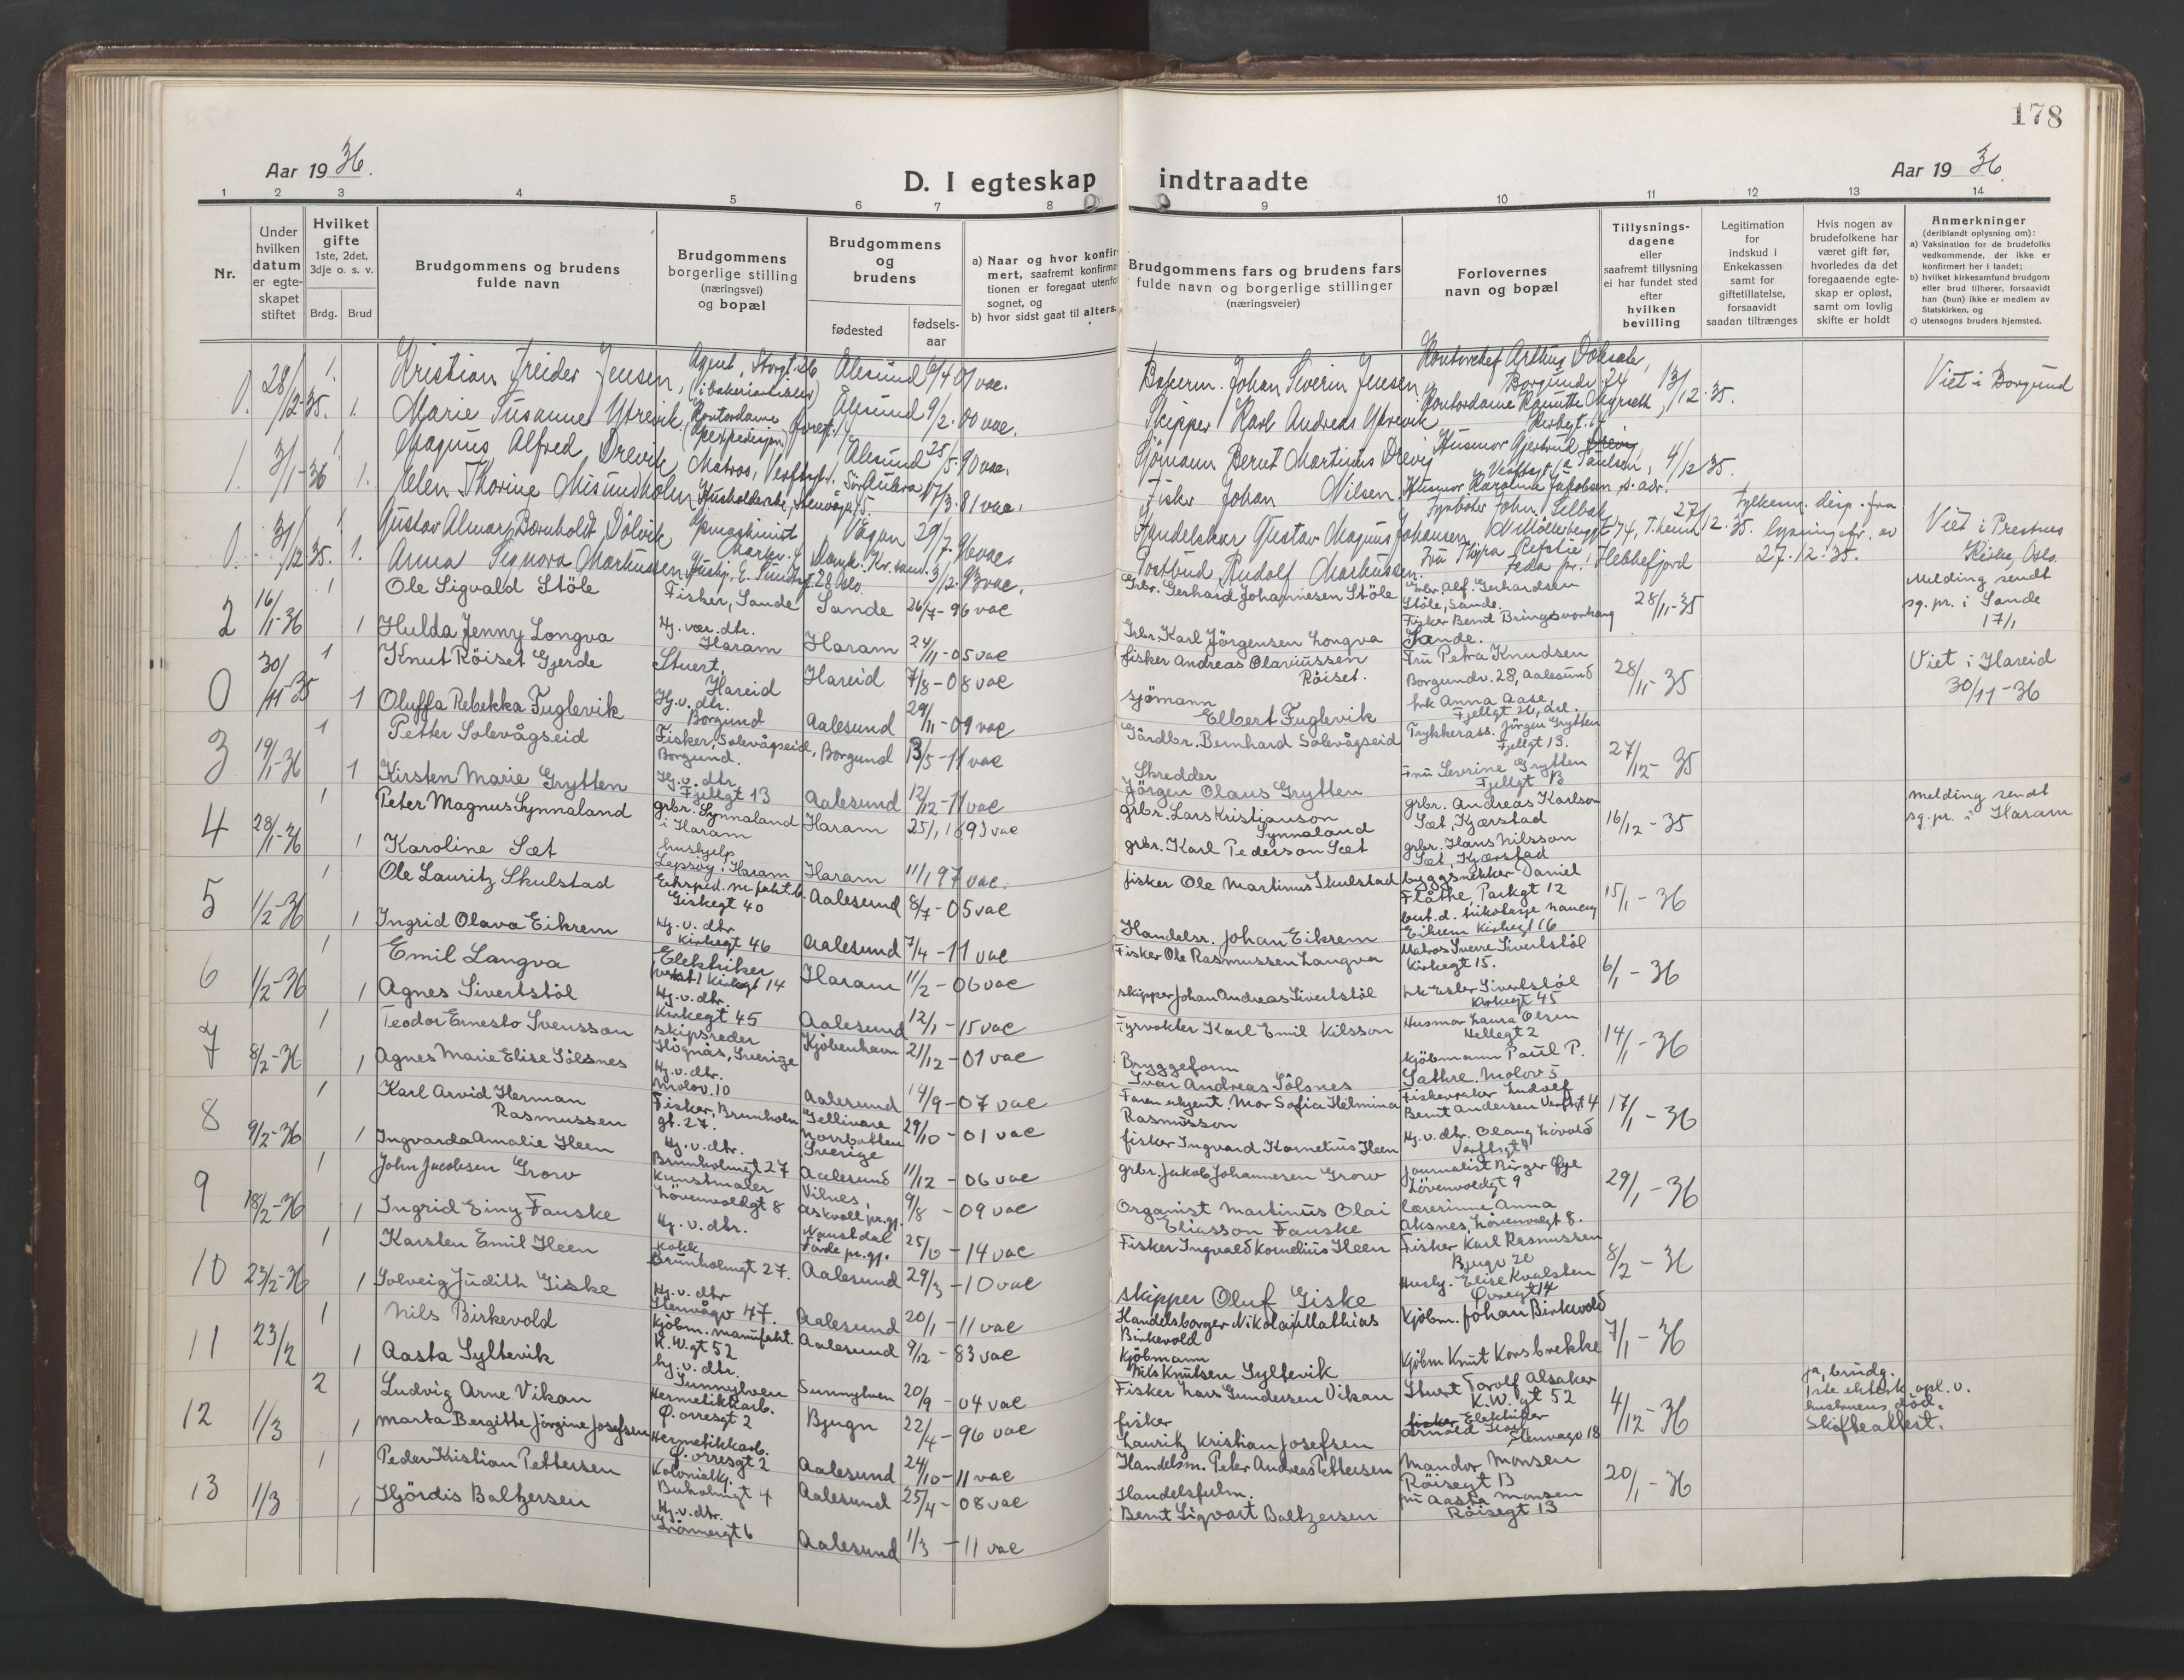 178
Aar 1936.
D. I egteskap indtraadte
Aar 1936.
1 2 3 4 5 6 7 8 9 10 11 12 13 14
Nr.
Under hvilken datum er egte-skapet stiftet
Hvilket gifte 1ste, 2det, 3dje o. s. v.
Brdg. Brud
Brudgommens og brudens fulde navn
Brudgommens borgerlige stilling (næringsvei) og bopæl
Brudgommens og brudens
fødested
fødsels-aar
a) Naar og hvor konfir-mert, saafremt konfirma-tionen er foregaat utenfor sognet, og
b) hvor sidst gaat til alters.
Brudgommens fars og brudens fars fulde navn og borgerlige stillinger (næringsveier)
Forlovernes navn og bopæl
Tillysnings-dagene eller saafremt tillysning ei har fundet sted efter hvilken bevilling
Legitimation for indskud i Enkekassen samt for giftetillatelse, forsaavidt saadan tiltrænges
Hvis nogen av brudefolkene har været gift før, hvorledes da det foregaaende egte-skap er opløst, samt om lovlig skifte er holdt
Anmerkninger (deriblandt oplysning om):
a) Vaksination for de brudefolks vedkommende, der ikke er konfirmert her i landet;
b) hvilket kirkesamfund brudgom eller brud tilhører, forsaavidt han (hun) ikke er medlem av Statskirken, og
c) utensogns bruders hjemsted.
0. 28/12-35. 1. Kristian Freider Jensen, Agent, Ålesund 6/4 01 vac. Johan Severin Jensen Kontorchef Arthur 13/12-35. Viet i Borgund
1. Marie Susanne Ytrevik Kontordame Ålesund 9/2. 00 vac. Skipper Karl Andreas Ytrevik Kontordame
1. 3/1-36 1 Magnus Alfred Drevik Matros, Ålesund 25/5. 90 vac. Sjömann Bernt Martinius Drevig Husmor Gjertrud 4/12 35.
1. Elen Thorine Misundholm Husholderske, 17/3. 81 vac. Fisker Johan Nilsen Husmor Karoline Jakobsen, s. adr.
0. 31/12 35. 1 Gustav Almar Bornholdt Dölvik Vågan 29/7. 96 vac. Gustav Magnus Johansen 27/12. 35. Fylkem. disp. fra lysningsfr. av 27.12.35. Viet i Prestnes Kirke, Oslo.
1. Anna Signora Markussen 3/2. 93 vac. Postbud Rudolf Markussen
2 16/1-36 1 Ole Sigvald Stöle Fisker, Sande Sande 26/7-96 vac Grbr. Gerhard Johannesen Stöle Grbr. Alf. Gerhardsen Stöle, Sande. 28/11-35 Melding sendt sg. pr. i Sande 17/1
1 Hulda Jenny Longva Hj. vær. dtr. Haram Haram 24/11-05 vac Grbr. Karl Jörgensen Longva Fisker Bernt Bringsvorhaug Sande.
0 30/11-35 1 Knut Röiset Gjerde Stuert Hareid Hareid 7/8-08 vac fisker Andreas Olaviussen Röiset. Fru Petra Knudsen Borgundv. 28, Aalesund 28/11-35 Viet i Hareid 30/11-36
1 Oluffa Rebekka Fuglevik Hj. v. dtr. Borgund Aalesund 29/11-09 vac sjömann Elbert Fuglevik frk Anna Aase Fjellgt 20,
3 19/1-36 1 Petter Solevågseid Fisker, Solevågseid, Borgund. Borgund 13/5-11 vac Gårdbr. Bernhard Solevågseid Trykkerass. Jörgen Grytten Fjellgt 13. 27/12-35
1 Kirsten Marie Grytten Hj. v. dtr. Fjellgt 13 Aalesund 12/12-11 vac Skredder Jörgen Olaus Grytten Fru Severine Grytten Fjellgt 13
4 28/1-36 1 Peter Magnus Synnaland grbr. Synnaland i Haram Haram 25/1 1893 vac grbr. Lars Kristianson Synnaland grbr. Andreas Karlson Sæt, Kjærstad 16/12-35 Melding sendt sg. pr. i Haram
1 Karoline Sæt hushjelp Lepsöy, Haram Haram 11/1 97 vac. grbr. Karl Pederson Sæt grbr. Hans Nilsson Sæt, Kjærstad
5 1/2-36 1 Ole Lauritz Skulstad Giskegt 40 Aalesund 8/7-05 vac fisker Ole Martinus Skulstad byggsnekker Daniel Flåthe, Parkgt 12 15/1-36
1 Ingrid Olava Eikrem Hj. v. dtr Kirkegt 46 Aalesund 7/4-11 vac Handelsr. Johan Eikrem Eikrem Kirkegt 16
6 1/2-36 1 Emil Langva Elektriker Kirkegt 14 Haram 11/2-06 vac Fisker Ole Rasmussen Langva Matros Sverre Sivertstöl Kirkegt 15. 6/1-36
1 Agnes Sivertstöl Hj. v. dtr. Kirkegt 45 Aalesund 12/1-15 vac skipper Johan Andreas Sivertstöl frk Ester Sivertstöl Kirkegt 45
7 8/2-36 1 Teodor Ernesto Svensson skipsreder Högnäs, Sverige Kjöbenhavn 21/12-01 vac Fyrvokter Karl Emil Nilsson Husmor Laura Olsen Hellegt 2 14/1-36
1 Agnes Marie Elise Sölsnes Hj. v. dtr. Molov. 10 Aalesund 14/9-07 vac Bryggeform Ivar Andreas Sölsnes Kjöbmann Paul P. Sathre. Molov 5
8 9/2-36 1 Karl Arvid Herman Rasmussen Fisker, Brunholmgt. 27. Gellivare Norrbotten Sverige 29/10-01 vac Faren ukjent. Mor Sofia Helmina Rasmusson Fiskevraker Ludolf Bernt Andersen Verftsgt 4 17/1-36
1 Ingvarda Amalie Heen Hj. v. dtr. Brunholmgt 27 Aalesund 11/12-06 vac fisker Ingvard Kornelius Heen Hj. v. dtr. Olaug Lövold Verftsgt 4
9 18/2-36 1 John Jacobsen Grov kunstmaler Lövenvoldgt 8 Vilnes, Askvoll pr.gj. 9/8-09 vac grbr. Jakob Johannesen Grov journalist Birger Öye Lövenvoldgt 9 29/1-36
1 Ingrid Einy Fauske Hj. v. dtr. Naustdal Förde pr. gj. 25/10-14 vac Organist Martinus Olai Eliasson Fauske lærerinne Anna Aksnes, Lövenvolgt 8.
10 23/2-36 1 Karsten Emil Heen kokk Brunholmgt 27. Aalesund 29/3-10 vac Fisker Ingvald Kornelius Heen Fisker Karl Rasmussen 8/2-36
1 Solveig Judith Giske Hj. v. dtr Stenvågv 47. Aalesund 20/1-11 vac skipper Oluf Giske Hushj. Elise Kvalsten
11 23/2 1 Nils Birkevold Kjöbm. manufakt. K. W. gt 52 Aalesund 9/12-83 vac Handelsborger Nikolai Mathias Birkevold Kjöbm. Johan Birkevold 7/1-36
1 Aasta Syltevik hj. v. dtr. Sunnylven Sunnylven 20/9-04 vac Kjöbmann Nils Knutsen Syltevik Kjöbm Knut Korsbrekke
12 1/3 2 Ludvig Arne Vikan Hermetikkarb. Ö. orresgt 2 Bjugn 22/4-96 vac Fisker Lars Gundersen Vikan Stuert Torolf Alsaker K. W. gt 52 4/12-36 ja, brudg. 1ste ektesk. opl. v. hustruens död. Skifteattest.
1 Marta Bergitte Jörgine Josefsen Hermetikkarb. Ö. orresgt 2 Aalesund 24/10-11 vac fisker Lauritz Kristian Josefsen fisker Elektriker Arnold Stenvågv 18
13 1/3 1 Peder Kristian Pettersen Kolonialkj. Buholmgt 4 Aalesund 25/4-08 vac Handelsm. Peter Andreas Pettersen Mandor Monsen Röisegt 13 20/1-36
1 Hjördis Baltzersen Hj. v. dtr. Aalesund 1/3-11 vac Handelsfulm. Bernt Sigvart Baltzersen fru Aasta Monsen Röisegt 13